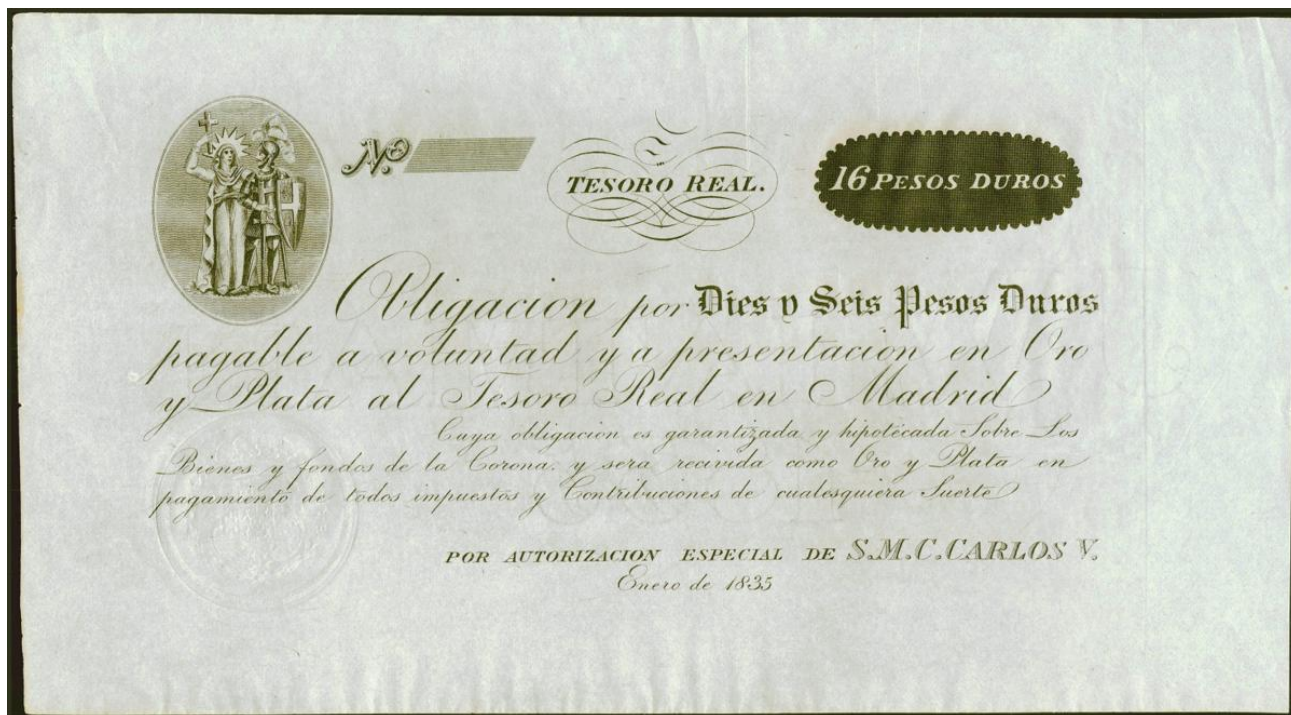 No.
TESORO REAL.
16 PESOS DUROS
Obligacion por Dies y Seis Pesos Duros
pagable a voluntad y a presentacion en Oro
y Plata al Tesoro Real en Madrid
Cuya obligacion es garantizada y hipotécada Sobre Los
Bienes y fondos de la Corona: y sera recivida como Oro y Plata en
pagamiento de todos impuestos y Contribuciones de cualesquiera Suerte
POR AUTORIZACION ESPECIAL DE S.M.C. CARLOS V.
Enero de 1835